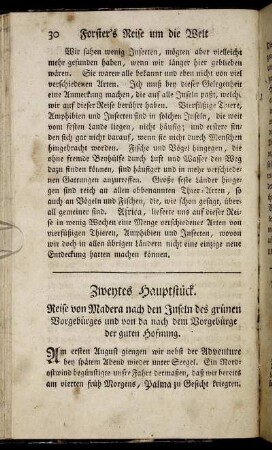 30 Forster's Reise um die Welt
Wir sahen wenig Insecten, mögten aber vielleicht
mehr gefunden haben, wenn wir länger hier geblieben
wären. Sie waren alle bekannt und eben nicht von viel
verschiedenen Arten. Ich muß bey dieser Gelegenheit
eine Anmerkung machen, die auf alle Inseln paßt, welche
wir auf dieser Reise berühret haben. Vierfüßige Thiere,
Amphibien und Insecten sind in solchen Inseln, die weit
vom festen Lande liegen, nicht häufig; und erstere fin-
den sich gar nicht darauf, wenn sie nicht durch Menschen
hingebracht worden. Fische und Vögel hingegen, die
ohne fremde Beyhülfe durch Luft und Wasser den Weg
dazu finden können, sind häufiger und in mehr verschiede-
nen Gattungen anzutreffen. Große feste Länder hinge-
gen sind reich an allen obbenannten Thier-Arten, so
auch an Vögeln und Fischen, die, wie schon gesagt, über-
all gemeiner sind. Africa, lieferte uns auf dieser Rei-
se in wenig Wochen eine Menge verschiedener Arten von
vierfüßigen Thieren, Amphibien und Insecten, wovon
wir doch in allen übrigen Ländern nicht eine einzige neue
Entdeckung hatten machen können.
Zweytes Hauptstück.
Reise von Madera nach den Inseln des grünen
Vorgebürges und von da nach dem Vorgebürge
der guten Hofnung.
Am ersten August giengen wir nebst der Adventure
bey spätem Abend wieder unter Seegel. Ein Nord-
ostwind begünstigte unsre Fahrt dermaßen, daß wir bereits
am vierten früh Morgens, Palma zu Gesicht kriegten.